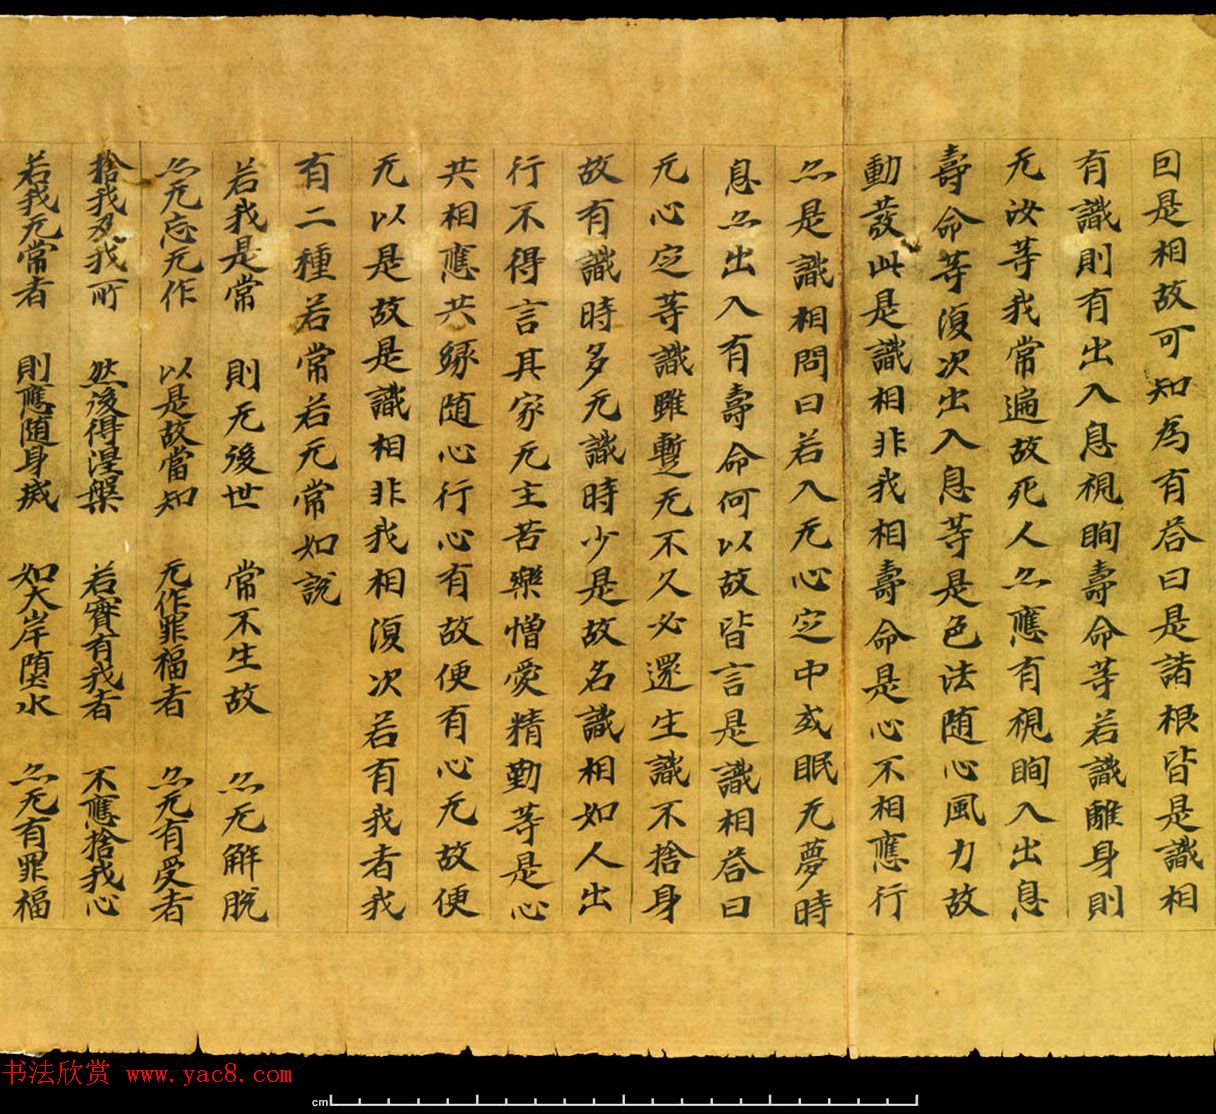 因是相故可知為有荅曰是諸根皆是識相
有識則有出入息視眴壽命等若識離身則
无汝等我常遍故死人亦應有視眴入出息
壽命等復次出入息等是色法随心風力故
動發此是識相非我相壽命是心不相應行
亦是識相問曰若入无心定中或眠无夢時
息亦出入有壽命何以故皆言是識相荅曰
无心定等識雖蹔无不久必還生識不捨身
故有識時多无識時少是故名識相如人出
行不得言其家无主苦樂憎愛精勤等是心
共相應共緣随心行心有故便有心无故便
无以是故是識相非我相復次若有我者我
有二種若常若无常如說
若我是常 則无後世 常不生故 亦无解脫
亦无忘无作 以是故當知 无作罪福者 亦无有受者
捨我及我所 然後得涅槃 若實有我者 不應捨我心
若我无常者 則應随身滅 如大岸墮水 亦无有罪福
书法欣赏 www.yac8.com
cm